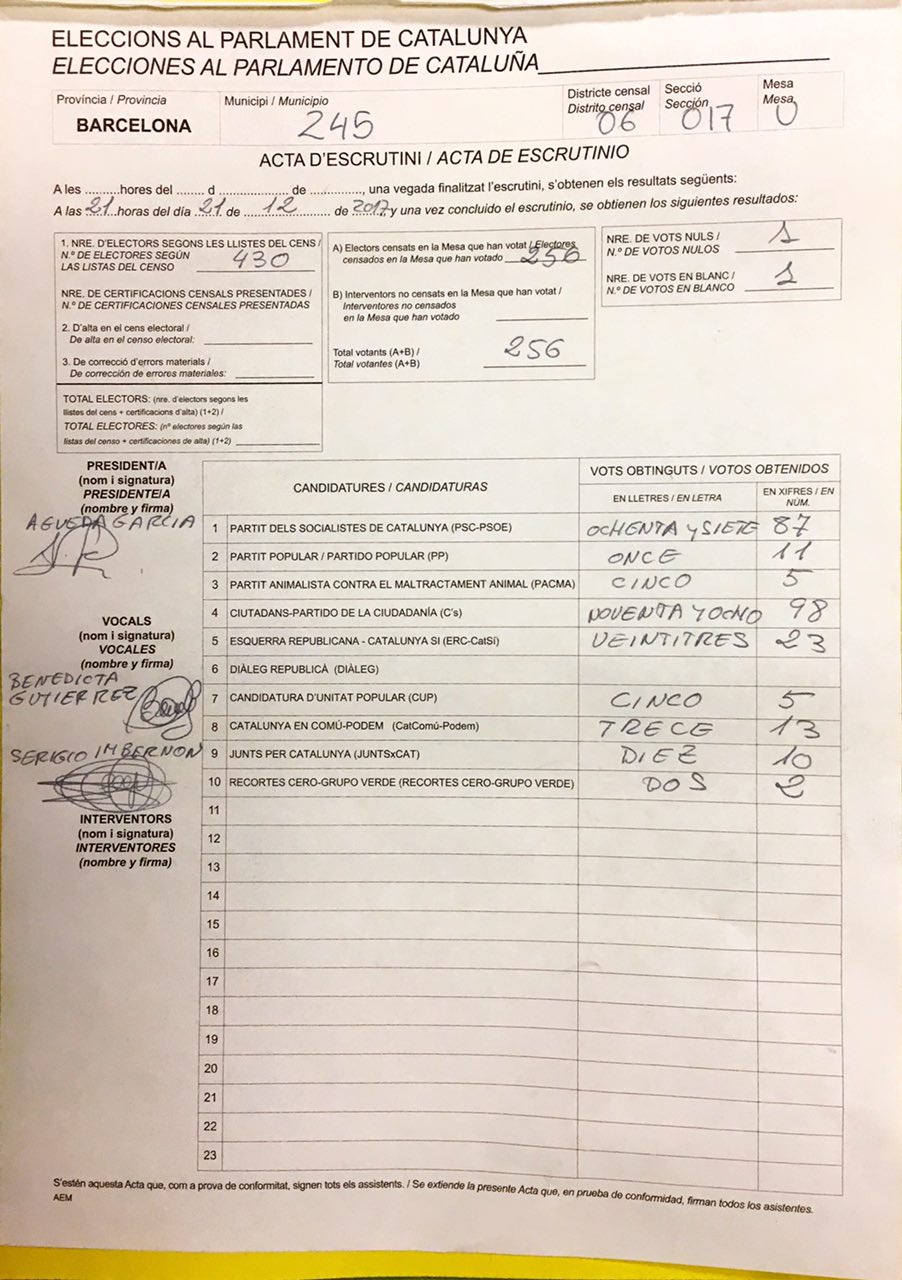 ELECCIONS AL PARLAMENT DE CATALUNYA
ELECCIONES AL PARLAMENTO DE CATALUÑA
Província / Provincia
BARCELONA
Municipi / Municipio
245
Districte censal
Distrito censal
06
Secció
Sección
017
Mesa
Mesa
U
ACTA D'ESCRUTINI / ACTA DE ESCRUTINIO
A les ..........hores del ........ d .................... de ..............., una vegada finalitzat l'escrutini, s'obtenen els resultats següents:
A las 21 horas del día 21 de 12 de 2017 y una vez concluido el escrutinio, se obtienen los siguientes resultados:
1. NRE. D'ELECTORS SEGONS LES LLISTES DEL CENS /
N.º DE ELECTORES SEGÚN
LAS LISTAS DEL CENSO 430
NRE. DE CERTIFICACIONS CENSALS PRESENTADES /
N.º DE CERTIFICACIONES CENSALES PRESENTADAS
2. D'alta en el cens electoral /
De alta en el censo electoral:
3. De correcció d'errors materials /
De corrección de errores materiales:
TOTAL ELECTORS: (nre. d'electors segons les
llistes del cens + certificacions d'alta) (1+2) /
TOTAL ELECTORES: (nº electores según las
listas del censo + certificaciones de alta) (1+2)
A) Electors censats en la Mesa que han votat / Electores
censados en la Mesa que han votado 256
B) Interventors no censats en la Mesa que han votat /
Interventores no censados
en la Mesa que han votado
Total votants (A+B) /
Total votantes (A+B) 256
NRE. DE VOTS NULS /
N.º DE VOTOS NULOS 1
NRE. DE VOTS EN BLANC /
N.º DE VOTOS EN BLANCO 1
PRESIDENT/A
(nom i signatura)
PRESIDENTE/A
(nombre y firma)
AGUEDA GARCIA
VOCALS
(nom i signatura)
VOCALES
(nombre y firma)
BENEDICTA
GUTIERREZ
SERIGIO IMBERNON
INTERVENTORS
(nom i signatura)
INTERVENTORES
(nombre y firma)
CANDIDATURES / CANDIDATURAS
VOTS OBTINGUTS / VOTOS OBTENIDOS
EN LLETRES / EN LETRA
EN XIFRES / EN
NÚM.
1 PARTIT DELS SOCIALISTES DE CATALUNYA (PSC-PSOE) OCHENTA Y SIETE 87
2 PARTIT POPULAR / PARTIDO POPULAR (PP) ONCE 11
3 PARTIT ANIMALISTA CONTRA EL MALTRACTAMENT ANIMAL (PACMA) CINCO 5
4 CIUTADANS-PARTIDO DE LA CIUDADANÍA (C's) NOVENTA Y OCHO 98
5 ESQUERRA REPUBLICANA - CATALUNYA SI (ERC-CatSí) VEINTITRES 23
6 DIÀLEG REPUBLICÀ (DIÀLEG)
7 CANDIDATURA D'UNITAT POPULAR (CUP) CINCO 5
8 CATALUNYA EN COMÚ-PODEM (CatComú-Podem) TRECE 13
9 JUNTS PER CATALUNYA (JUNTSxCAT) DIEZ 10
10 RECORTES CERO-GRUPO VERDE (RECORTES CERO-GRUPO VERDE) DOS 2
11
12
13
14
15
16
17
18
19
20
21
22
23
S'estén aquesta Acta que, com a prova de conformitat, signen tots els assistents. / Se extiende la presente Acta que, en prueba de conformidad, firman todos los asistentes.
AEM